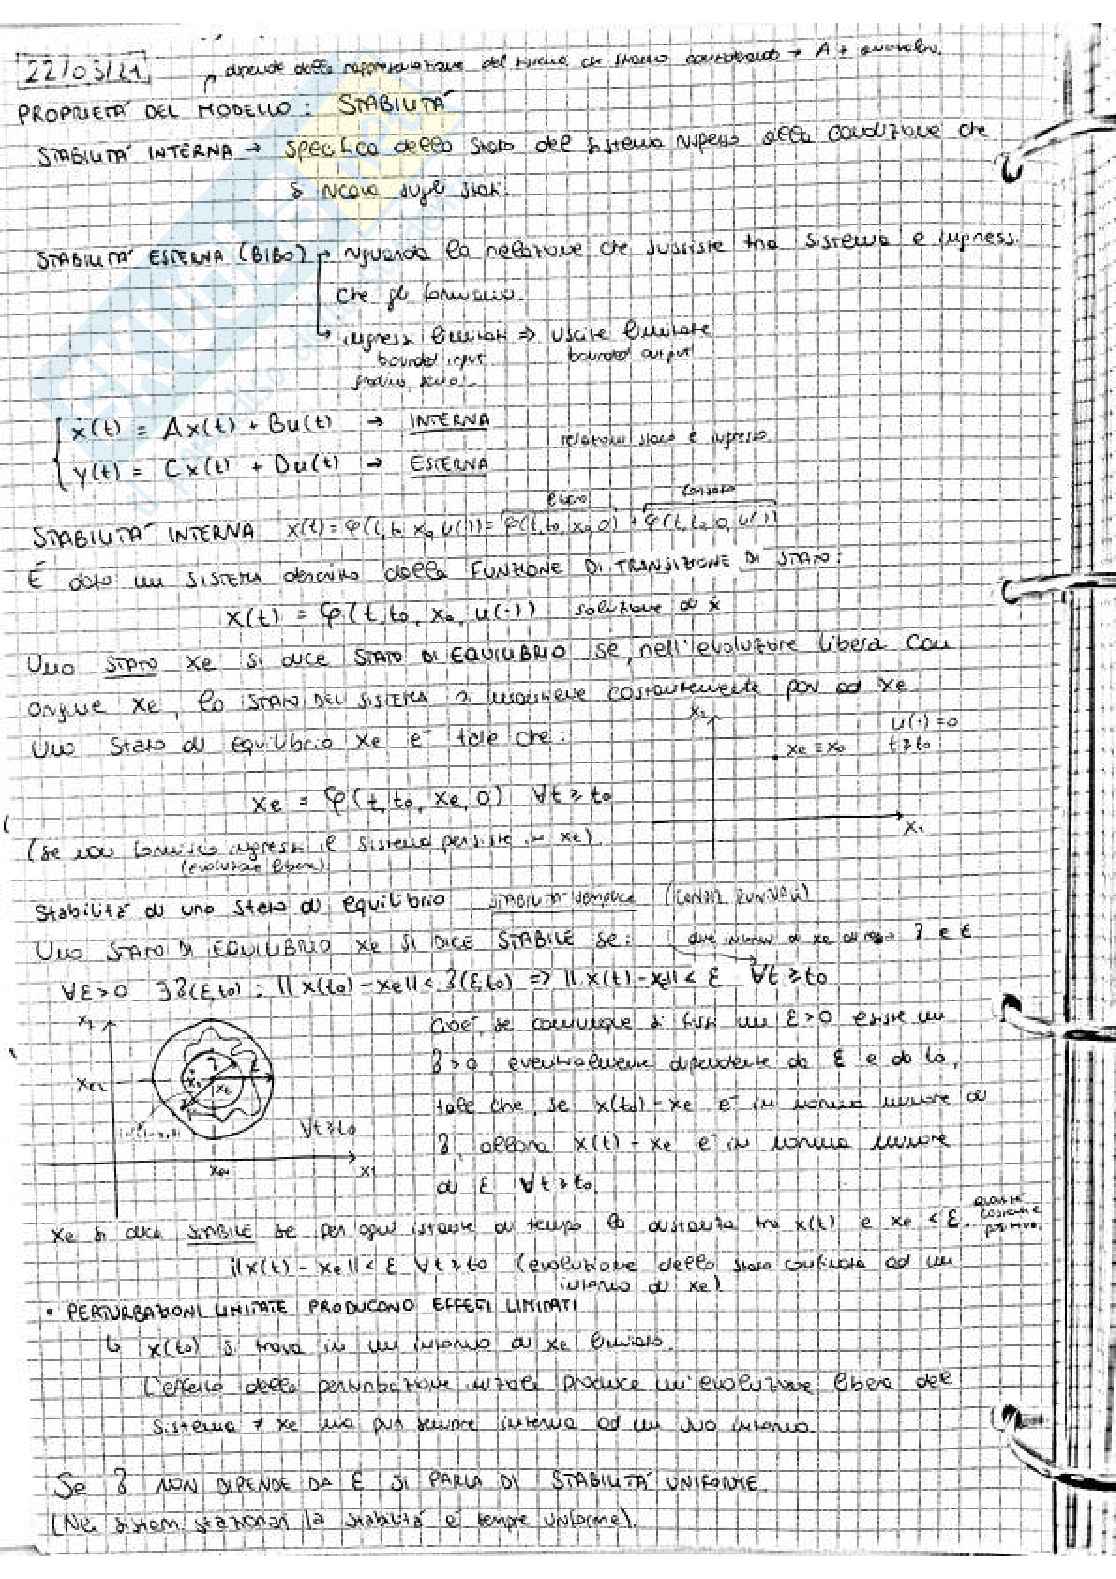 22/03/21
dipende dalla rappresentazione del sistema che stiamo considerando → A
PROPRIETÀ DEL MODELLO: STABILITÀ
STABILITÀ INTERNA → Specifica dello stato del sistema rispetto alla condizione che
si ricava sugli stati.
STABILITÀ ESTERNA (BIBO) → riguarda la relazione che sussiste tra sistema e ingressi
che gli fornisco.
ingressi limitati => uscite limitate
bounded input bounded output
gradino,
ẋ(t) = Ax(t) + Bu(t) → INTERNA
relazione stato e ingresso
y(t) = Cx(t) + Du(t) → ESTERNA
libero forzato
STABILITÀ INTERNA x(t) = φ(t, t0, x0, u(·)) = φ(t, t0, x0, 0) + φ(t, t0, 0, u(·))
È dato un SISTEMA descritto dalla FUNZIONE DI TRANSIZIONE DI STATO:
x(t) = φ(t, t0, x0, u(·)) soluzione di ẋ
Uno STATO xe si dice STATO DI EQUILIBRIO se, nell'evoluzione libera con
origine xe, lo STATO DEL SISTEMA si mantiene costantemente pari ad xe
x2 u(·) = 0
Uno Stato di equilibrio xe è tale che: xe = x0 t ≥ t0
xe = φ(t, t0, xe, 0) ∀t ≥ t0
x1
(Se non fornisco ingressi il sistema persiste in xe).
(evoluzione libera)
Stabilità di uno stato di equilibrio STABILITÀ SEMPLICE
Uno STATO DI EQUILIBRIO xe SI DICE STABILE se: due intorni di xe di raggio δ e ε
∀ε>0 ∃δ(ε,t0) : ||x(t0) - xe|| < δ(ε,t0) => ||x(t) - xe|| < ε ∀t ≥ t0
x2
xe2
xe
∀t ≥ t0
xe1 x1
Cioè, se comunque si fissi un ε>0 esiste un
δ>0, eventualmente dipendente da ε e da t0,
tale che, se x(t0) - xe è in norma minore di
δ, allora x(t) - xe è in norma minore
di ε ∀t ≥ t0.
xe si dice STABILE se per ogni istante di tempo la distanza tra x(t) e xe < ε. costante positiva.
||x(t) - xe|| < ε ∀t ≥ t0 (evoluzione dello stato confinata ad un
intorno di xe)
• PERTURBAZIONI LIMITATE PRODUCONO EFFETI LIMITATI
↳ x(t0) si trova in un intorno di xe limitato.
L'effetto della perturbazione iniziale produce un'evoluzione libera del
Sistema ≠ xe ma pur sempre interna ad un suo intorno.
Se δ NON DIPENDE DA ε SI PARLA DI STABILITÀ UNIFORME.
(Nei sistemi stazionari la stabilità è sempre uniforme).